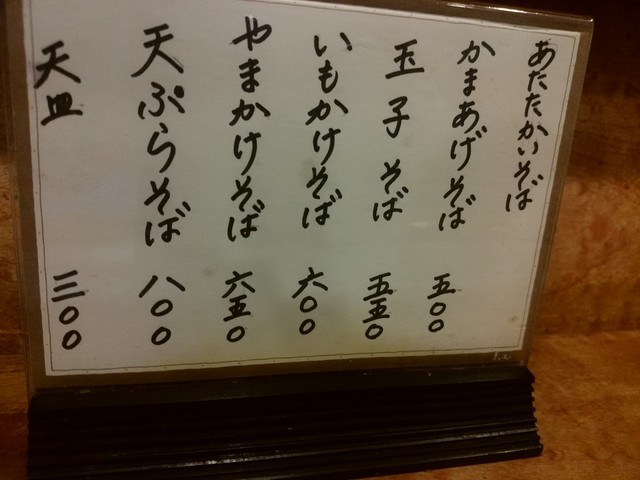 あたたかいそば
かまあげそば 五〇〇
玉子そば 五五〇
いもかけそば 六〇〇
やまかけそば 六五〇
天ぷらそば 八〇〇
天皿 三〇〇